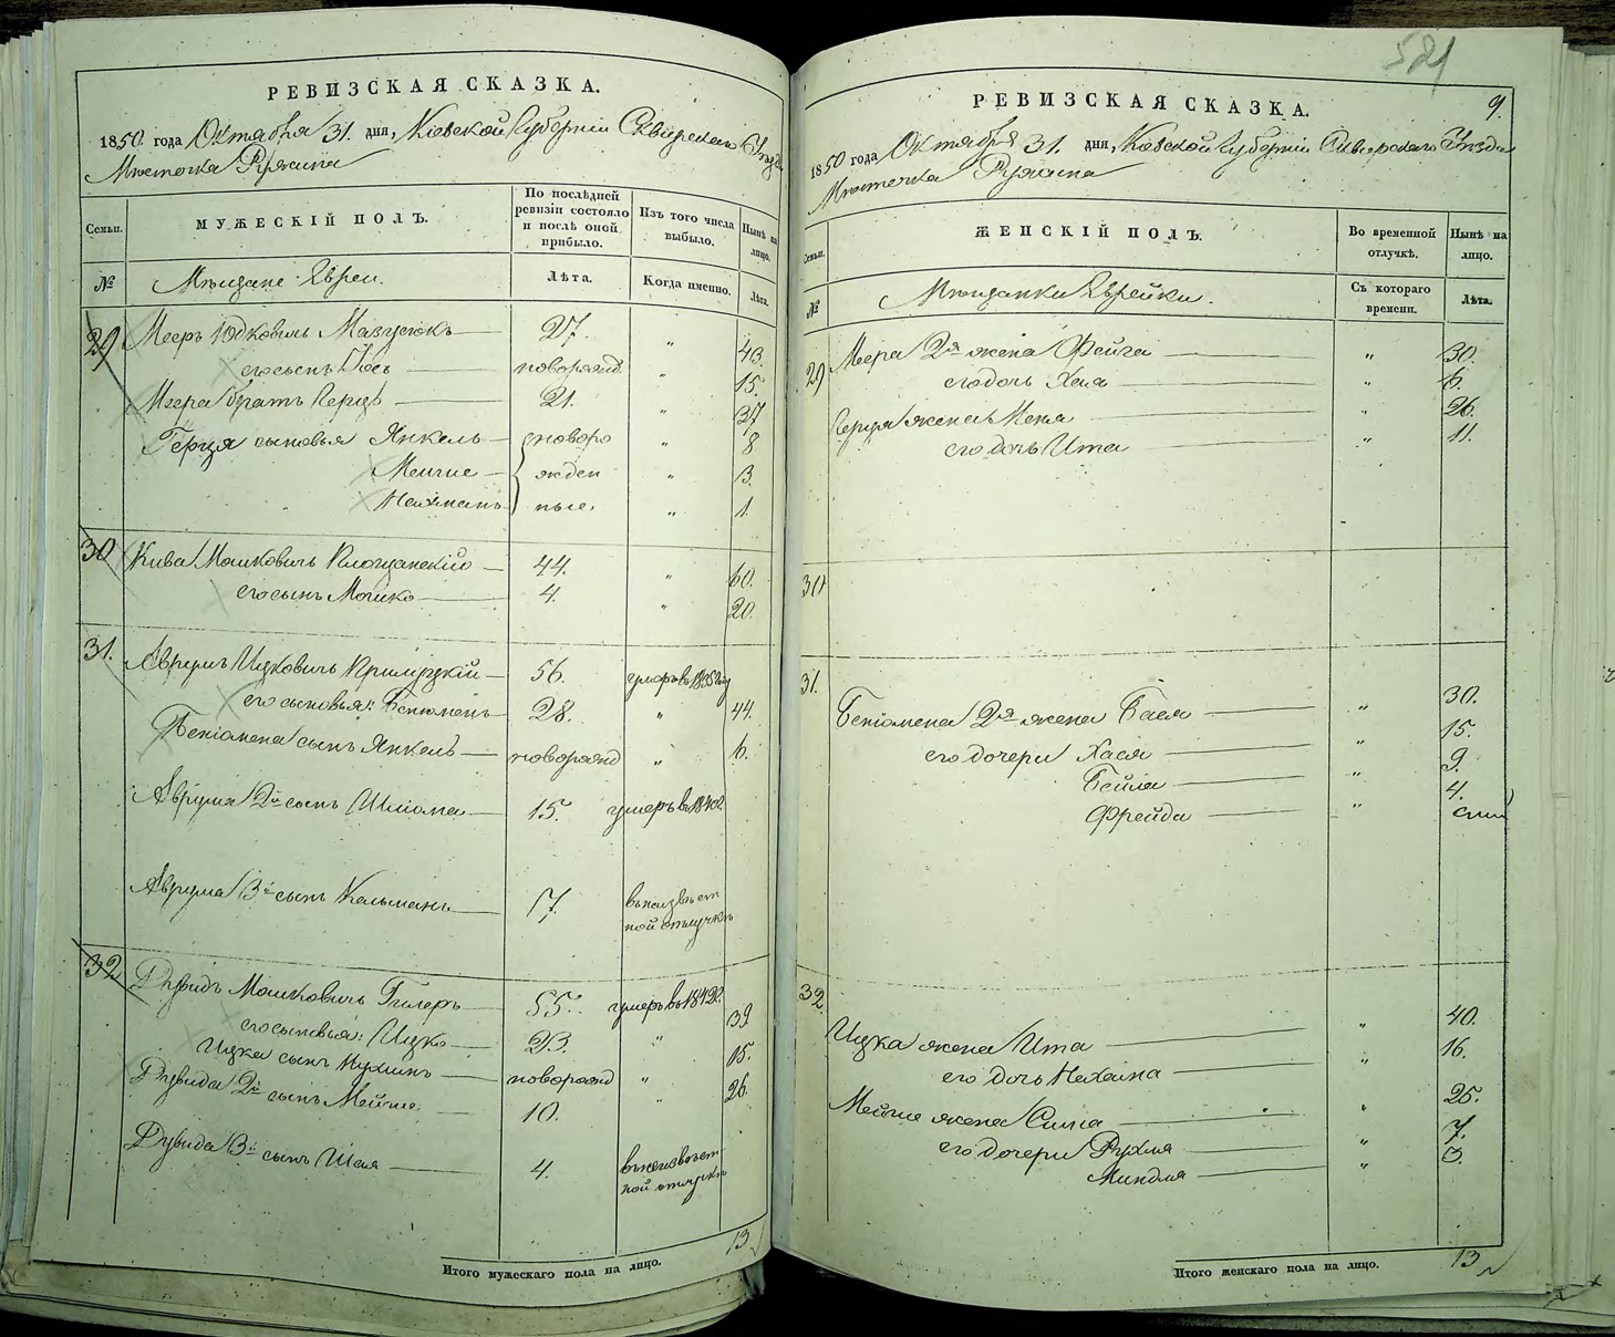 РЕВИЗСКАЯ СКАЗКА.
1850 года Октября 31. дня, Кіевской Губерніи Сквирскаго Уезда
Мѣстечка Ружина
Семьи.
МУЖЕСКІЙ ПОЛЪ.
По послѣдней ревизіи состояло и послѣ оной прибыло.
Изъ того числа выбыло.
Нынѣ на лицо.
№
Мѣщане Евреи.
Лѣта.
Когда именно.
Лѣта.
29 Мееръ Юдковичъ 27. " 43.
его сынъ Іось новорожд. " 15.
Меера братъ Герцъ 21. " 37
Герця сыновья Янкель новоро " 8
жден " 3.
Нахманъ ные. " 1.
30 Кива Мошковичъ 44. " 60.
его сынъ Мошко 4. " 20.
31. Аврумъ Ицковичъ 56. умеръ въ
его сыновья: Беніоменъ 28. " 44.
Беніомена сынъ Янкель новорожд " 6.
Аврума 2й сынъ Шліома 15. умеръ въ 1840
Аврума 3й сынъ Кельманъ 17. въ неизвѣст
ной отлучкѣ
32 Дувидъ Мошковичъ 55. умеръ въ 1842
его сыновья: Ицко 23. " 39.
Ицка сынъ Нухимъ новорожд " 15.
Дувида 2й сынъ Мейше. 10. " 26.
Дувида 3й сынъ Шая 4. въ неизвѣст
ной отлучкѣ
Итого мужескаго пола на лицо. 13
581
9.
РЕВИЗСКАЯ СКАЗКА.
1850 года Октября 31. дня, Кіевской Губерніи Сквирскаго Уезда
Мѣстечка Ружина
Семьи.
ЖЕНСКІЙ ПОЛЪ.
Во временной отлучкѣ.
Нынѣ на лицо.
№
Мѣщанки Еврейки.
Съ котораго времени.
Лѣта.
29 Меера 2я жена Фейга " 30.
его дочь Хая " 6.
Герця жена " 26.
его дочь Ита " 11.
30
31. Беніомена 2я жена Бася " 30.
его дочери Хася " 15.
Бейла " 9.
Фрейда " 4.
32 Ицка жена Ита " 40.
его дочь Нехама " 16.
Мейше жена Сима " 25.
его дочери Рухля " 7.
Миндля " 3.
Итого женскаго пола на лицо. 13